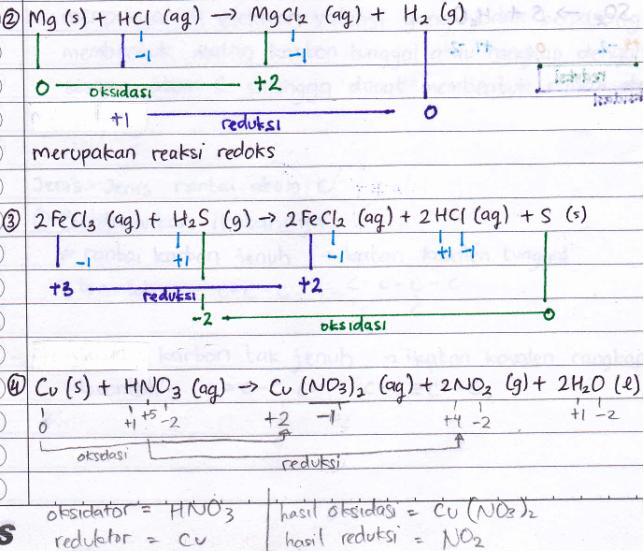 ② Mg (s) + HCl (aq) → MgCl2 (aq) + H2 (g)
-1 -1
0 oksidasi +2
+1 reduksi 0
merupakan reaksi redoks
③ 2 FeCl3 (aq) + H2S (g) → 2 FeCl2 (aq) + 2 HCl (aq) + S (s)
-1 +1 -1 +1 -1
+3 reduksi +2
-2 oksidasi 0
④ Cu (s) + HNO3 (aq) → Cu (NO3)2 (aq) + 2NO2 (g) + 2H2O (l)
0 +1 +5 -2 +2 -1 +4 -2 +1 -2
oksdasi reduksi
oksidator = HNO3 hasil oksidasi = Cu (NO3)2
reduktor = Cu hasil reduksi = NO2